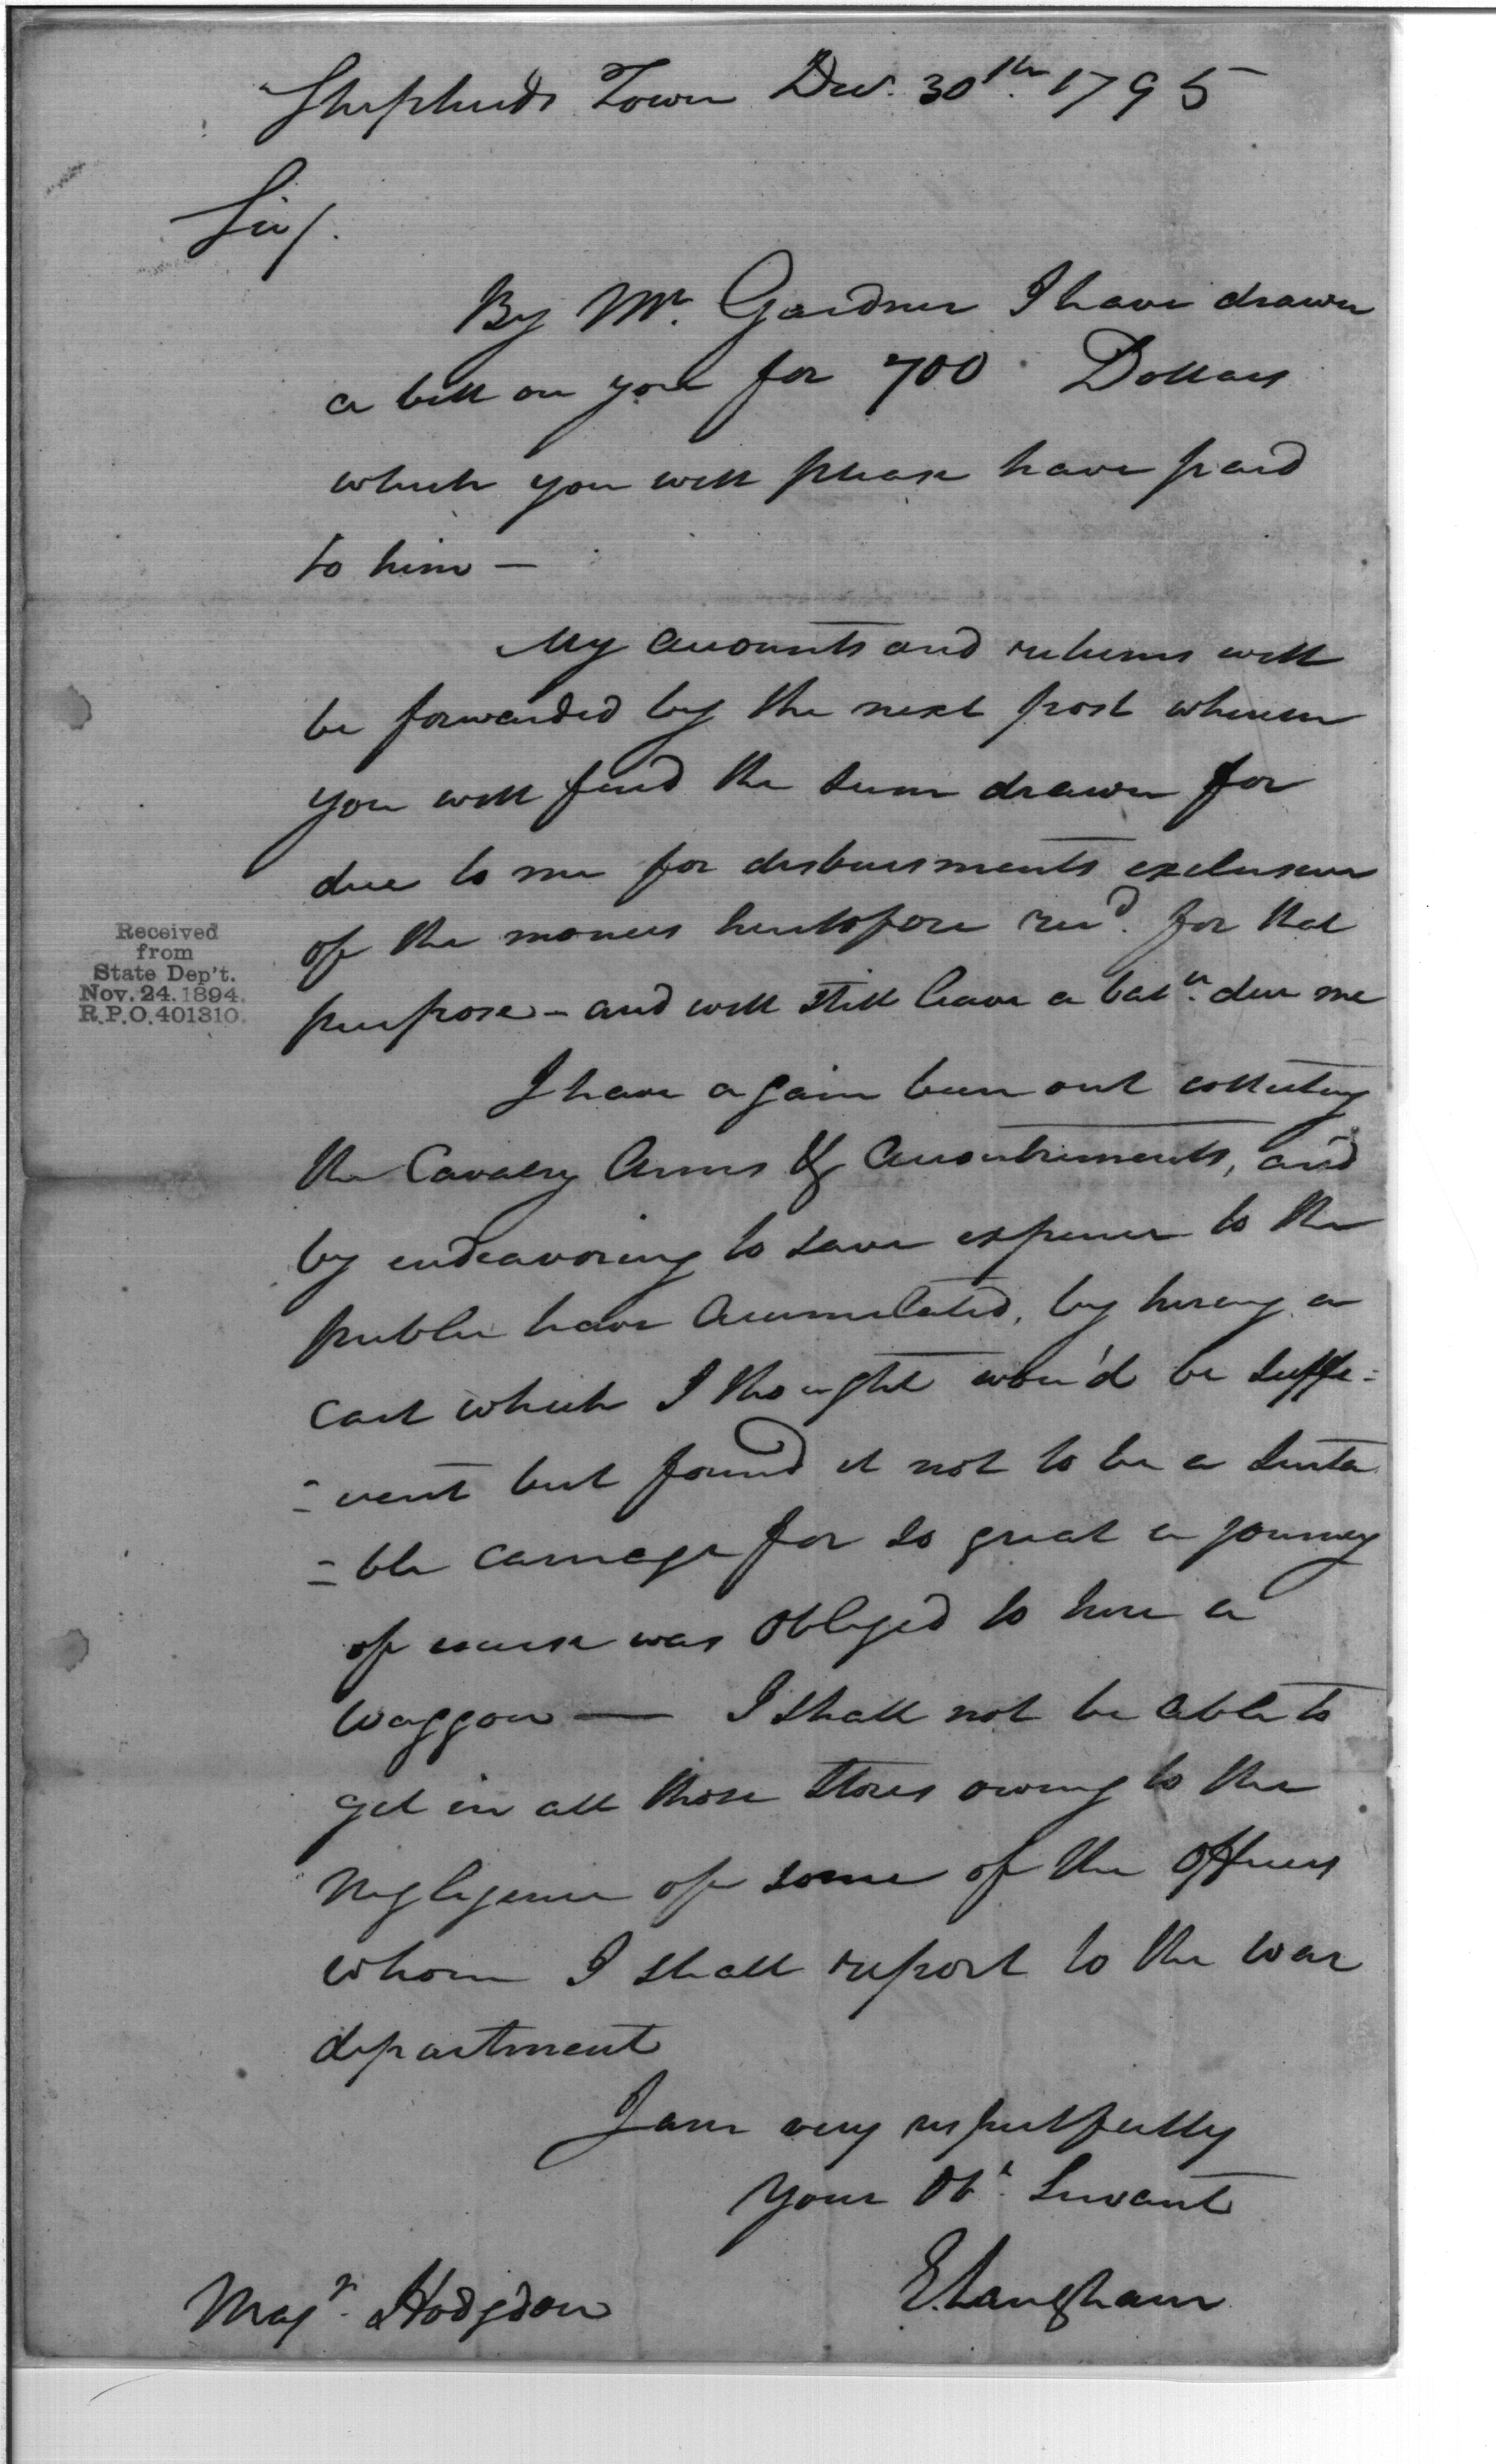 Shepherds Town Dec. 30th. 1795
Sir/.
By Mr. Gardner I have drawn
a bill on you for 700 Dollars
which you will please have paid
to him —
My accounts and returns will
be forwarded by the next post wherein
you will find the sum drawn for
due to me for disbursments exclusive
of the monies heretofore recd. for that
purpose - and will still leave a balce. due me
I have again been out collecting
the Cavalry Arms & Accoutriments, and
by endeavoring to save expence to the
public have Accumulated, by hireing a
cart which I thought wou'd be suffi=
=cient but found it not to be a suita
=ble carriage for so great a journey
of course was obliged to hire a
waggon — I shall not be able to
get in all those stores owing to the
negligence of some of the officers
whom I shall report to the war
department
I am very respectfully
Your Obt. Servant
E. Langham
Majr. Hodgdon
Received
from
State Dep't.
Nov. 24. 1894.
R.P.O. 401310.